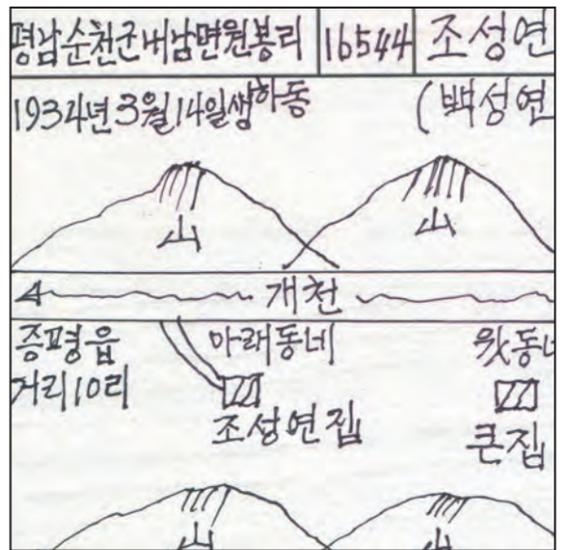 평남순천군내남면원봉리 16544 조성연
1934년3월14일생 하동 (백성연
山 山
개천
증평읍 아래동네 윗동네
거리10리
조성연집 큰집
山 山